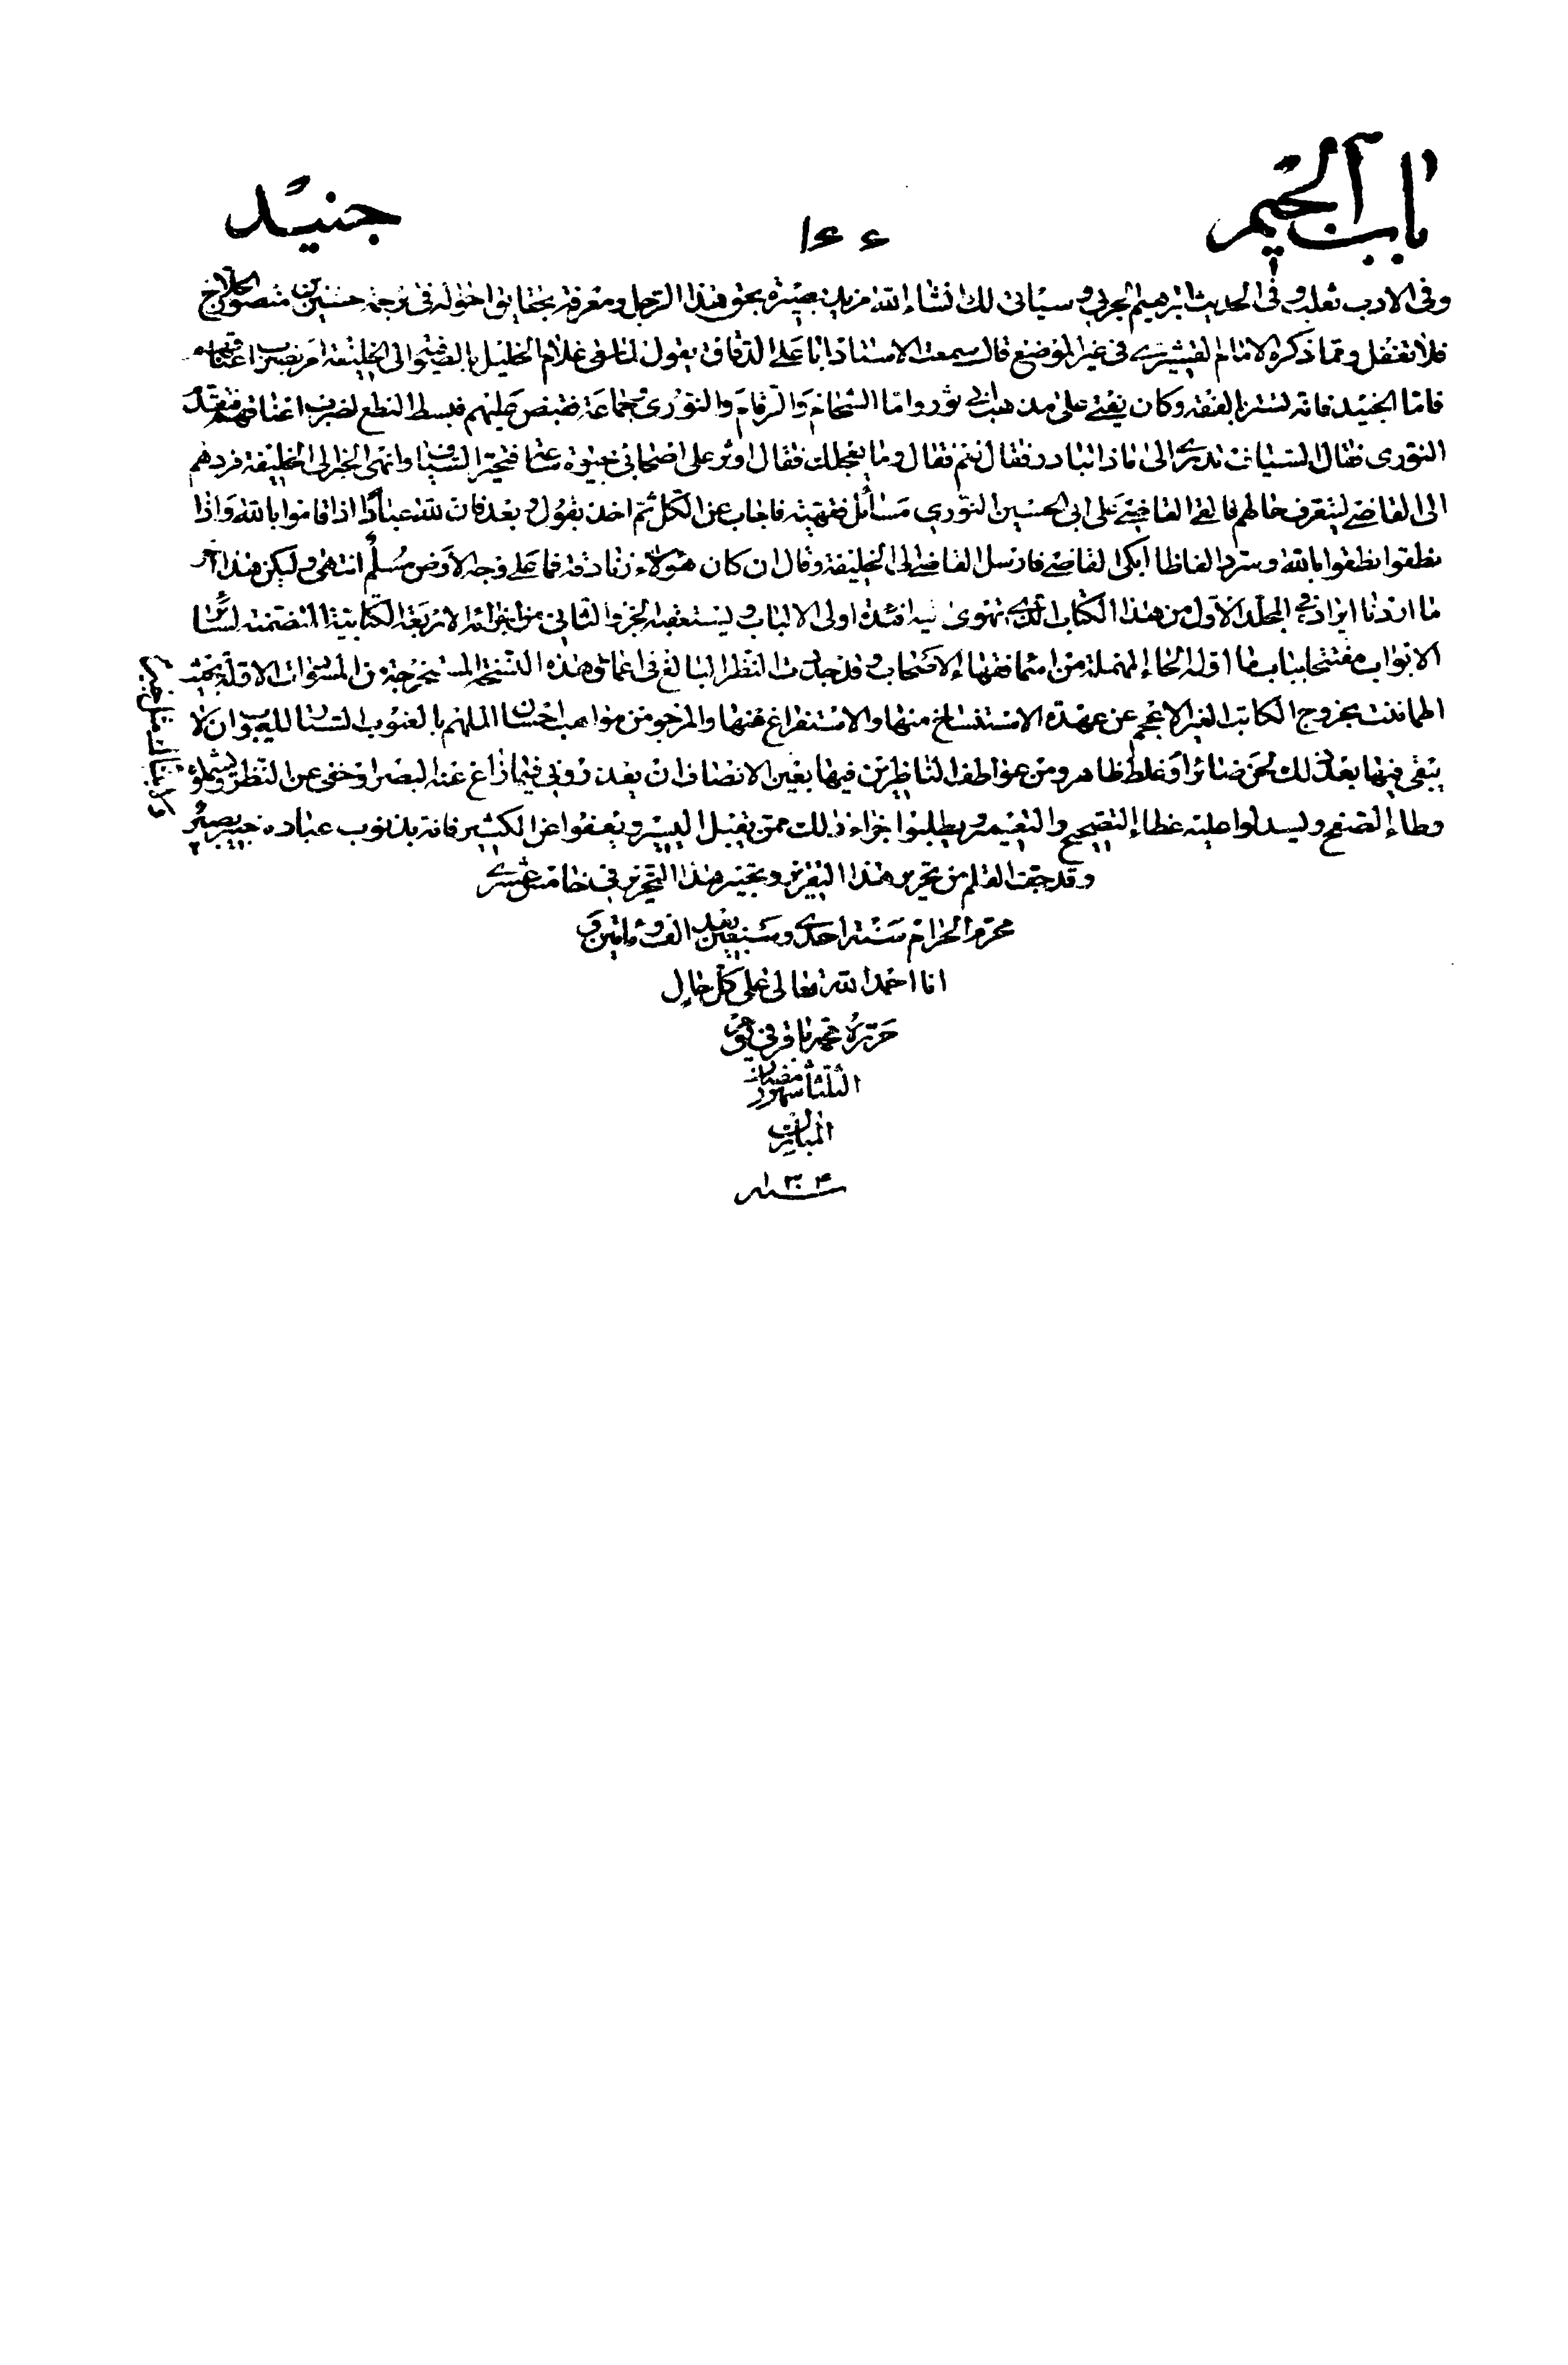 باب الجيم
١٤٤
جنيد
وفى الادب ثعلب وفى الحديث ابرهيم الحربى وسياتى لك انشاء الله مزيد بصيرة بحق هذا الرجل ومعرفة بحقايق احواله فى ترجمة حسين بن منصور الحلاج
فلا تغفل ومما ذكره الامام القشيرى فى غير الموضع قال سمعت الاستاذ ابا على الدقاق يقول لما سعى غلام الخليل بالصوفية الى الخليفة امر بضرب اعناقهم
فاما الجنيد فانه تستر بالفقه وكان يفتى على مذهب ابى ثور واما الشحام والرقام والنورى وجماعة فقبض عليهم فبسط النطع لضرب اعناقهم فتقدم
النورى فقال السياف تدرى الى ماذا تبادر فقال نعم فقال وما يعجلك فقال اوثر على اصحابى حيوة ساعة فتحير السياف وانهى الخبر الى الخليفة فردهم
الى القاضى ليتعرف حالهم فالقى القاضى على ابى الحسين النورى مسائل فقهية فاجاب عن الكل ثم اخذ يقول وبعد فان لله عبادا اذا قاموا قاموا بالله واذا
نطقوا نطقوا بالله وسرد الفاظا ابكى القاضى فارسل القاضى الى الخليفة وقال ان كان هؤلاء زنادقة فما على وجه الارض مسلم انتهى وليكن هذا آخر
ما اردنا ايراده فى المجلد الاول من هذا الكتاب الذى تهوى اليه افئدة اولى الالباب وليستعقبه الجزء الثانى من اجزائه الاربعة الكتابية المتضمنة لسائر
الابواب مفتتحا بباب ما اوله الحاء المهملة من اسماء فقهاء الاصحاب وقد جلت النظر البالغ فى اعماق هذه النسخة المستخرجة من المسودات الاقلة بحيث
اطمأننت بخروج الكاتب الغير الاعجم عن عهدة الاستنساخ منها والاستفراغ عنها والمرجو من مواهب احسان الملهم بالغيوب الستار للعيوب ان لا
يبقى فيها بعد ذلك لحن ضائر او غلط ظاهر ومن عواطف الناظرين فيها بعين الانصاف ان يعذرونى فيما زاغ عنه البصر او خفى عن النظر ويشملوه
وطاء الصفح وليسدلوا عليه غطاء التصحيح والتغيير ويطلبوا جزاء ذلك ممن يقبل اليسير ويعفوا عن الكثير فانه بذنوب عباده خبير بصير
وقد جف القلم من تحرير هذا التقرير وتحبير هذا التحرير فى خامس عشرى
محرم الحرام سنة احدى وسبعين بعد الف ومائتين و
انا احمد الله تعالى على كل حال
حرره محمد باقر فى يوم
الثلثا شهر رمضان
المبارك
سنة ١٣٠٤